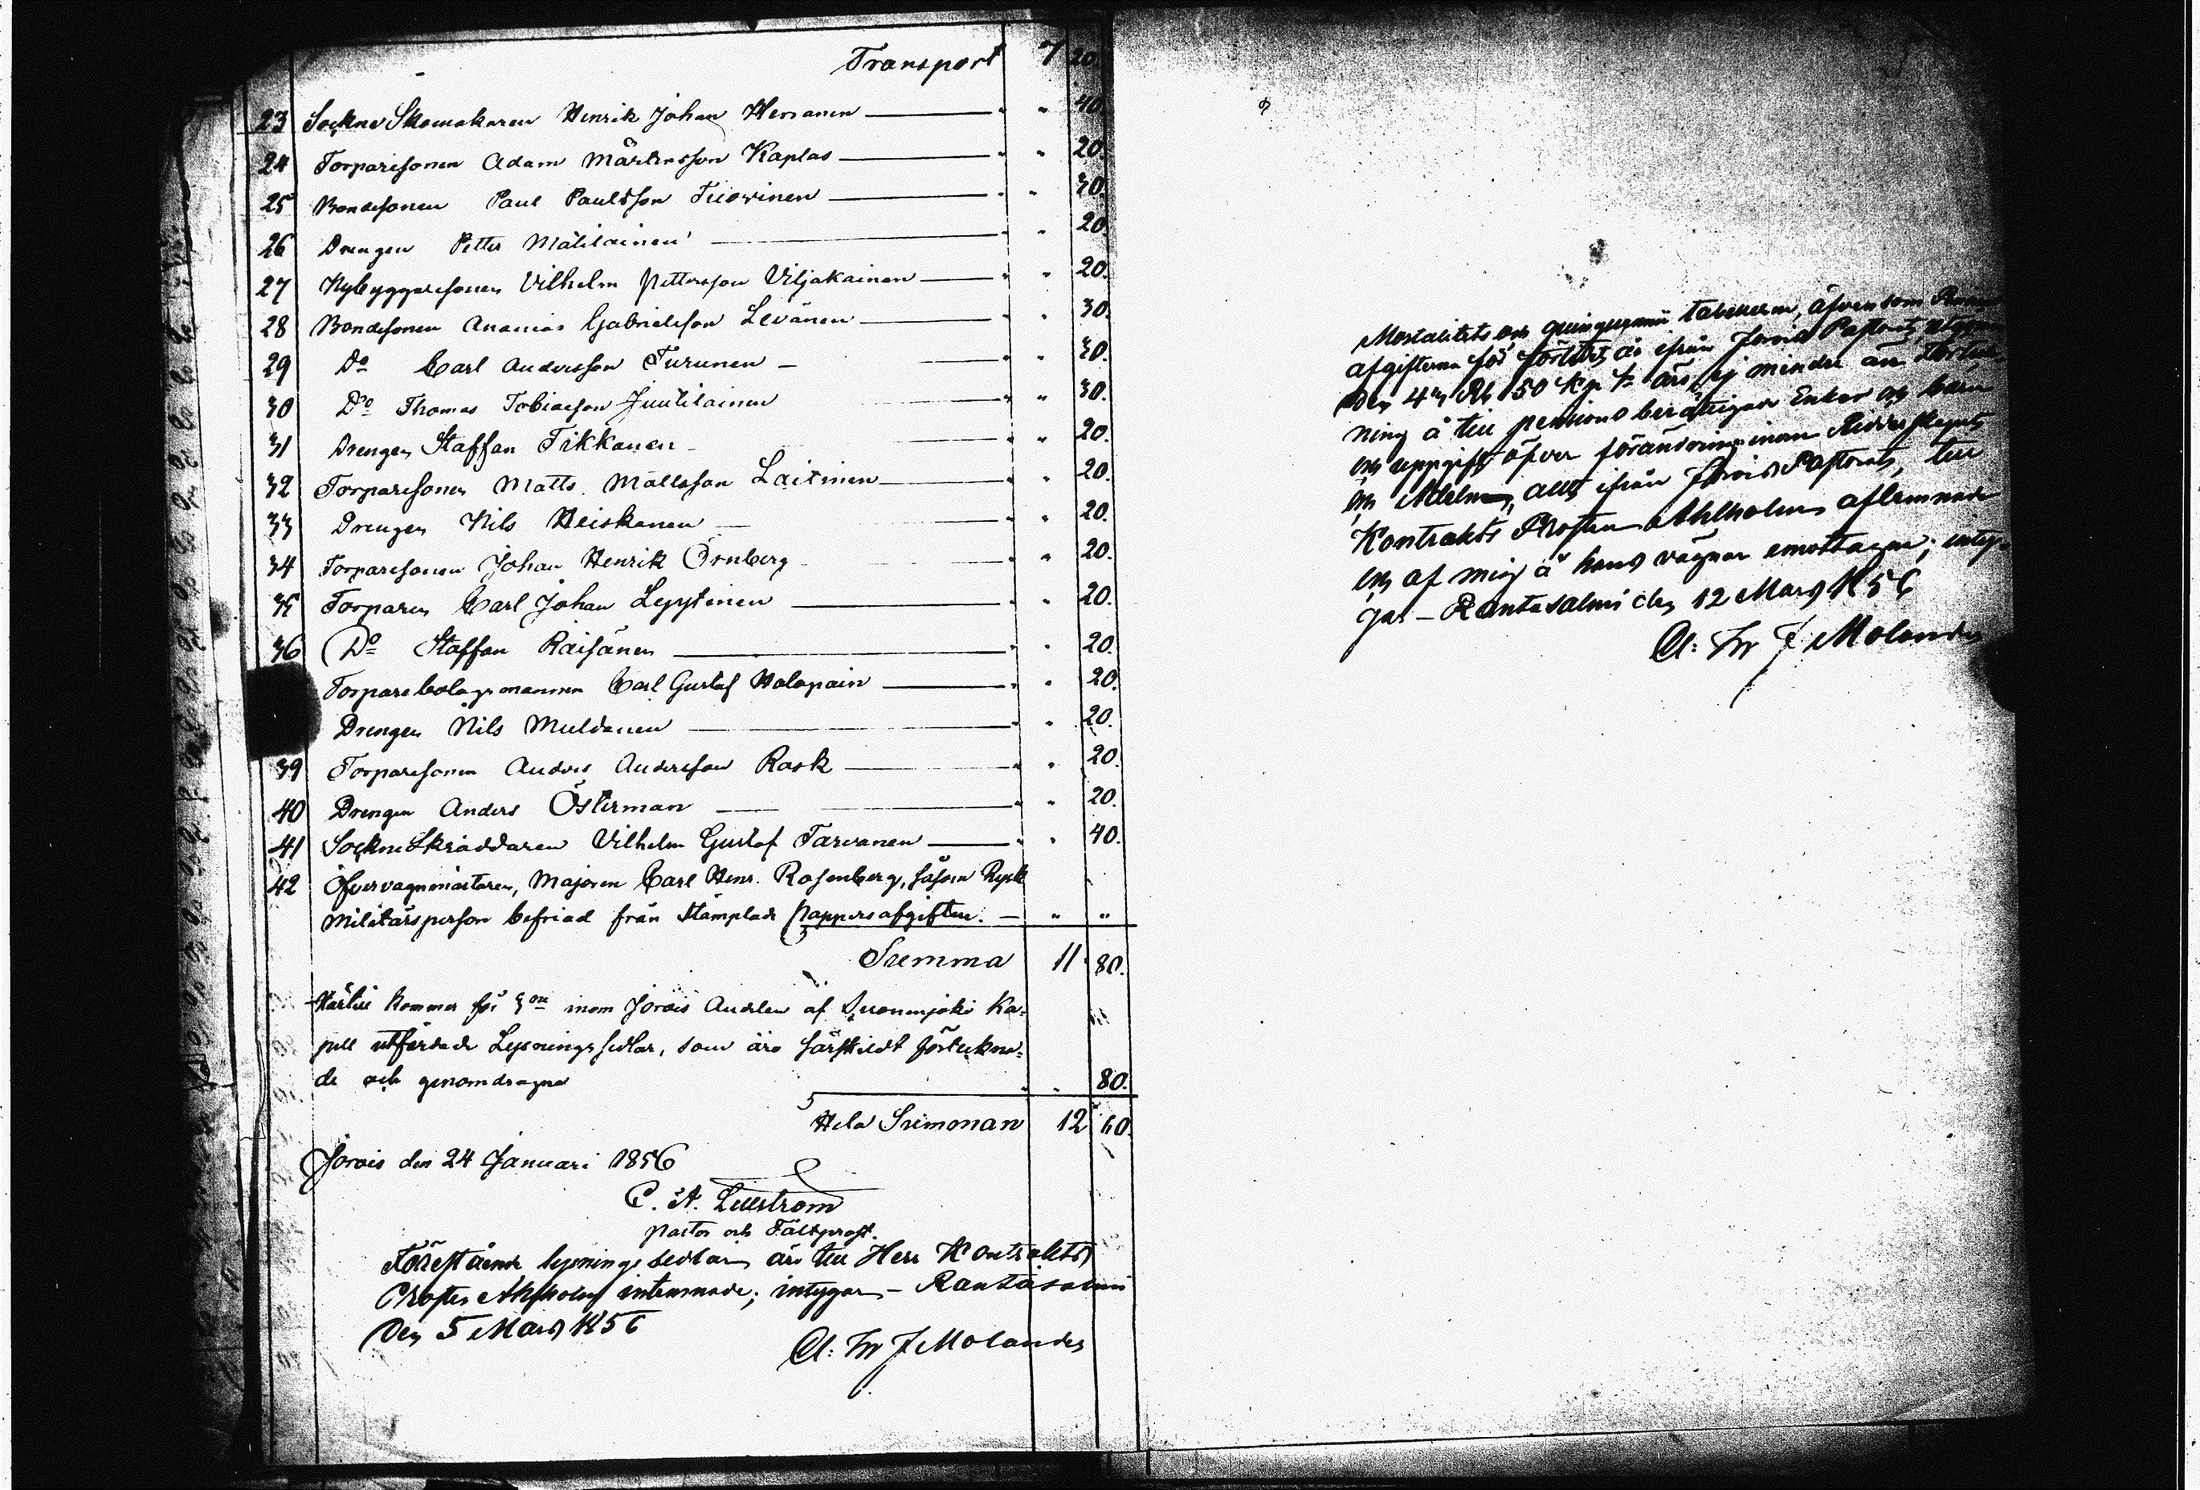 Transport 7 20.
23 Sockne Skomakaren Henrik Johan Hersanen " " 40.
24 Torparesonen Adam Mårtensson Kaplas " " 20.
25 Bondesonen Paul Paulsson Tiusvinen " " 30.
26 Drengen Petter Mälilainen " 20.
27 Nybyggaresonen Vilhelm Pettersson Viljakainen " " 20.
28 Bondesonen Ananias Gabrielsson Levänen " " 30.
29 Do Carl Andersson Turunen " " 30.
30 Do Thomas Tobiasson Juutilainen " " 30.
31 Drengen Staffan Tikkanen " " 20.
32 Torparesonen Matts Mattsson Laitinen " " 20.
33 Drengen Nils Heiskanen " " 20.
34 Torparesonen Johan Henrik Örnberg " " 20.
35 Torparen Carl Johan Lyytinen " " 20.
36 Do Staffan Räisänen " " 20.
Torparebolagsmannen Carl Gustaf Holopain " " 20.
Drengen Nils Muldanen " " 20.
39 Torparesonen Anders Andersson Rask " " 20.
40 Drengen Anders Österman " " 20.
41 Sockne Skräddaren Vilhelm Gustaf Tarvanen " " 40.
42 Öfvervagnmästaren, Majoren Carl Henr. Rosenberg, såsom Rysk
Militärsperson befriad från Stämplade pappersafgiften. " "
Summa 11 80.
Härtill kommer för inom Jorois Andelen af Suonenjoki Ka-
pell utfärdade Lysningssedlar, som äro särskildt förtekna-
de och genomdragne " " 80.
Hela Summan 12 60.
Jorois den 24 Januari 1856
C. A. Lillström
Pastor och Fältprost.
Förestående lysningssedlar äro till Herr Kontrakts
Prosten Ahlholm inlemnade; intygar – Rantasalmi
den 5 Mars 1856
Cl: Fr J Molander
Mortalitets och quinquennii tabellerne, äfvensom
afgifterna för år ifrån Jorois Pastorat
den 4 Rb 50 Kop ej mindre än
ning å till pensions berättigade Enkor och barn
och uppgift öfver förändring inom Ridderskapet
och Adeln, allt ifrån Jorois Pastorat, till
Kontrakts Prosten Ahlholm aflemnade
och af mig å hans vägnar emottagne; inty-
gar – Rantasalmi den 12 Mars 1856
Cl: Fr J Molander